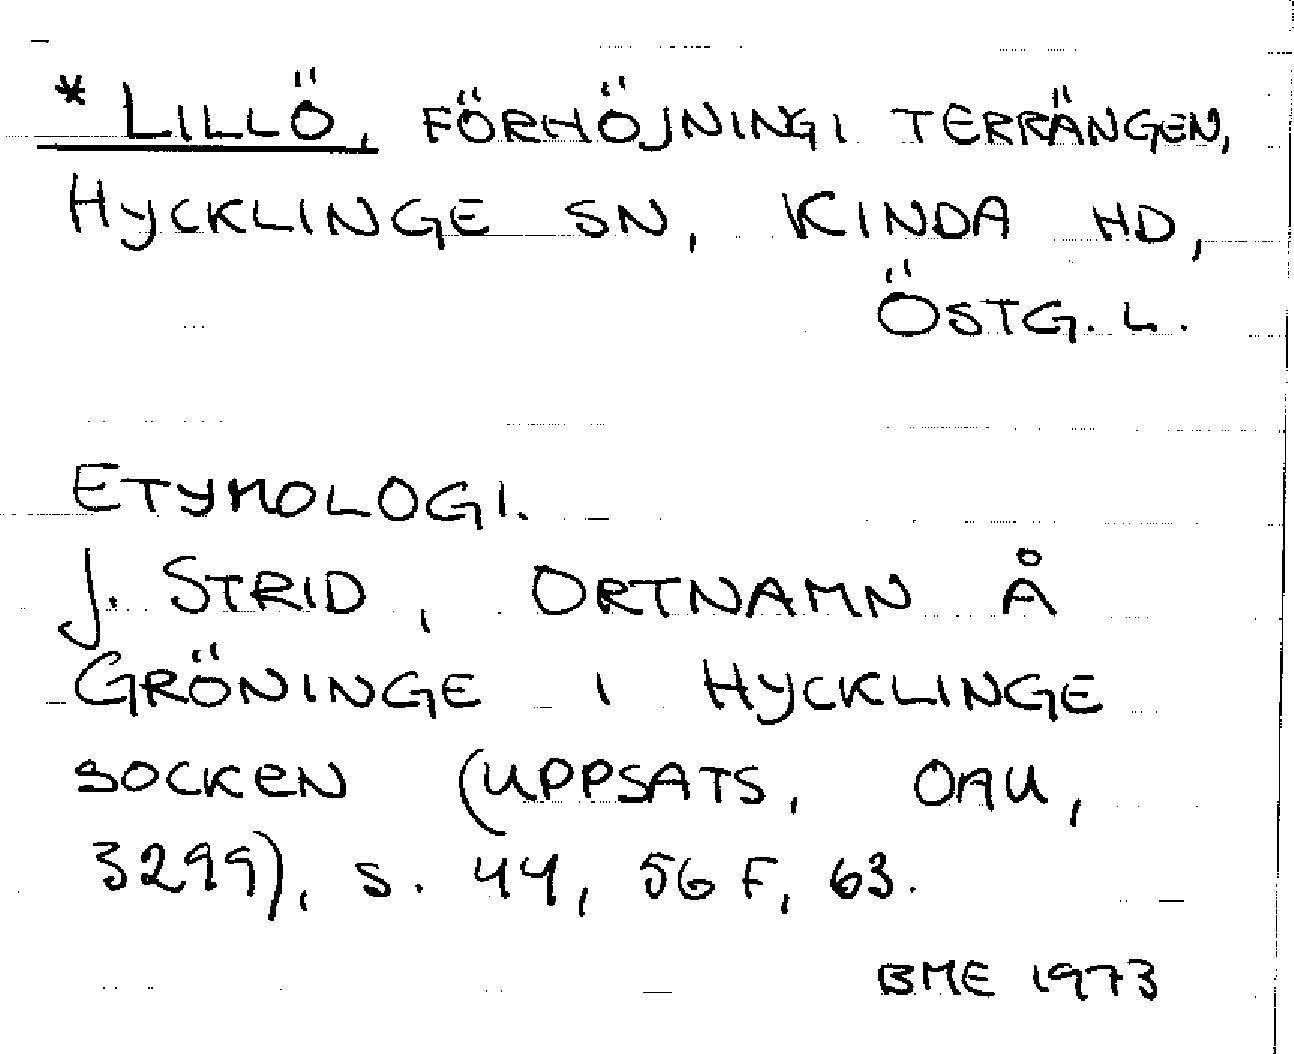 * LILLÖ, FÖRHÖJNING I TERRÄNGEN,
HYCKLINGE SN, KINDA HD,
ÖSTG. L.
ETYMOLOGI.
J. STRID, ORTNAMN Å
GRÖNINGE I HYCKLINGE
SOCKEN (UPPSATS, OAU,
3299), S. 44, 56 F, 63.
BME 1973